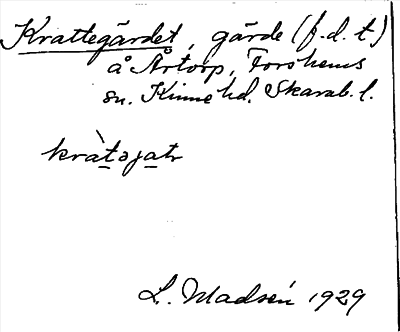 Krattegärdet, gärde (f.d.t.)
å Årtorp, Forshems
sn. Kinne hd. Skarab. l.
kràtəjatr
L. Madsén 1929